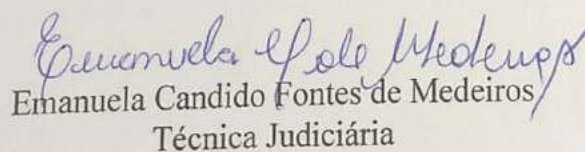 Emanuela F de Medeiros
Emanuela Candido Fontes de Medeiros
Técnica Judiciária